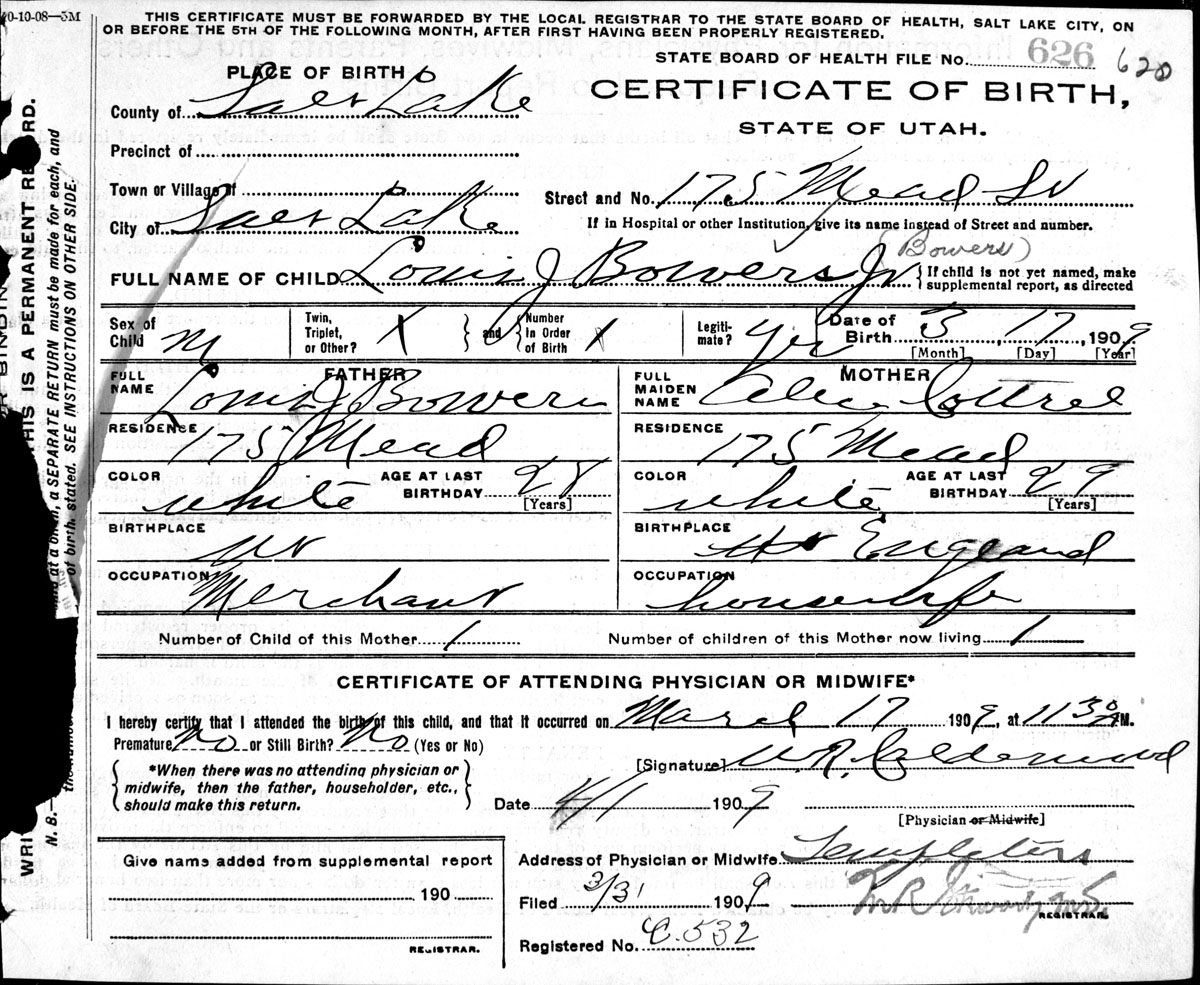 0-10-08—5M
THIS CERTIFICATE MUST BE FORWARDED BY THE LOCAL REGISTRAR TO THE STATE BOARD OF HEALTH, SALT LAKE CITY, ON
OR BEFORE THE 5TH OF THE FOLLOWING MONTH, AFTER FIRST HAVING BEEN PROPERLY REGISTERED.
STATE BOARD OF HEALTH FILE No. 626 628
PLACE OF BIRTH
CERTIFICATE OF BIRTH,
STATE OF UTAH.
County of Salt Lake
Precinct of
Town or Village of
City of Salt Lake
Street and No. 175 Mead St
If in Hospital or other Institution, give its name instead of Street and number.
(Bowers)
FULL NAME OF CHILD Louis J Bowers Jr
If child is not yet named, make supplemental report, as directed
Sex of Child M
Twin, Triplet, or Other? X and Number In Order of Birth X
Legiti-mate? yes
Date of Birth 3, 17, 1909
[Month] [Day] [Year]
FATHER
FULL NAME Louis J Bowers
RESIDENCE 175 Mead
COLOR white AGE AT LAST BIRTHDAY 28 [Years]
BIRTHPLACE Ut
OCCUPATION Merchant
MOTHER
FULL MAIDEN NAME Alice Cottrel
RESIDENCE 175 Mead
COLOR white AGE AT LAST BIRTHDAY 29 [Years]
BIRTHPLACE Ut England
OCCUPATION housewife
Number of Child of this Mother 1
Number of children of this Mother now living 1
CERTIFICATE OF ATTENDING PHYSICIAN OR MIDWIFE*
I hereby certify that I attended the birth of this child, and that it occurred on March 17 1909, at 11 30 M.
Premature No or Still Birth? No (Yes or No)
[Signature] W.R. Calderwood
*When there was no attending physician or
midwife, then the father, householder, etc.,
should make this return.
Date 4/1 1909
[Physician or Midwife]
Address of Physician or Midwife Templeton
Filed 3/31 1909
REGISTRAR.
Registered No. C. 532
Give name added from supplemental report
190
REGISTRAR.
THIS IS A PERMANENT RECORD.
a SEPARATE RETURN must be made for each, and
of birth, stated. SEE INSTRUCTIONS ON OTHER SIDE.
N. B.—